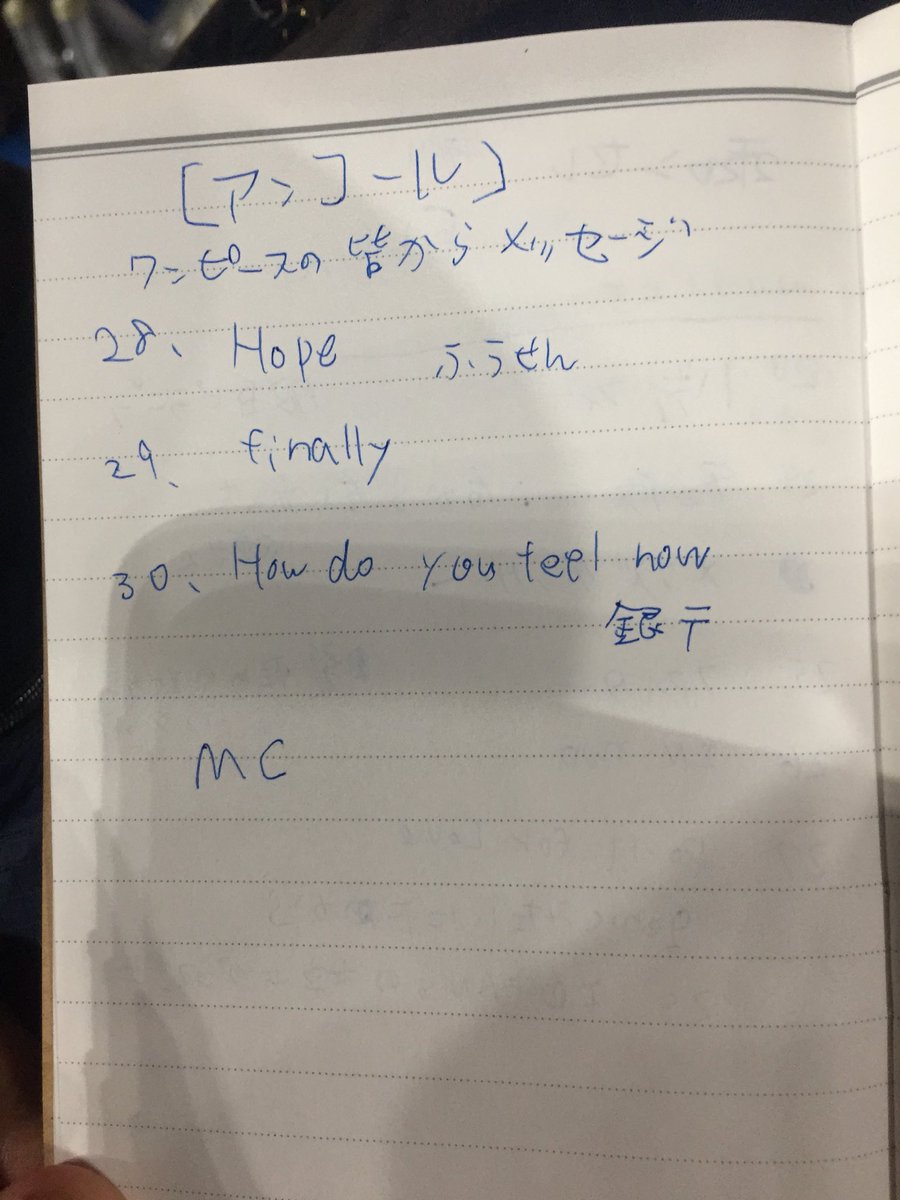 [アンコール]
ワンピースの皆からメッセージ
28、 Hope ふうせん
29、 finally
30、 How do you feel now
銀テ
MC